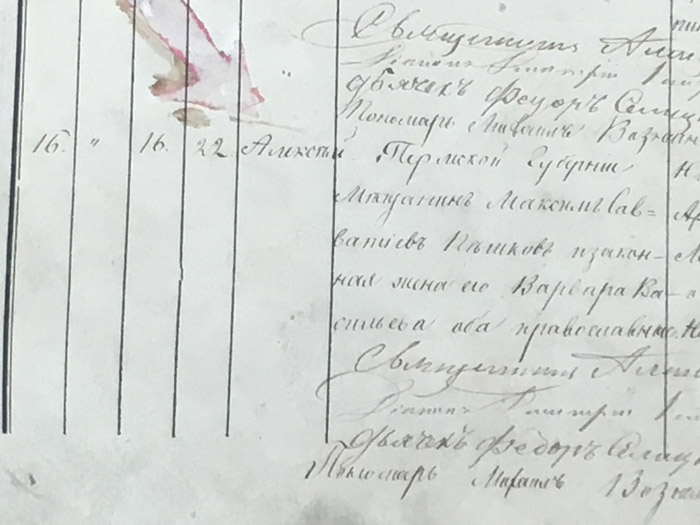 Священникъ Алек
Діаконъ Димитрій
дьячекъ Федоръ Селиц
Пономарь Михаилъ Вознесен
16. " 16. 22 Алексѣй Пермской Губерніи
мѣщанинъ Максимъ Сав=
ватіевъ Пѣшковъ и закон-
ная жена его Варвара Ва-
сильева оба православные
Священникъ Алек
Діаконъ Димитрій
Дьячекъ Федоръ Селиц
Пономарь Михаилъ Вознес